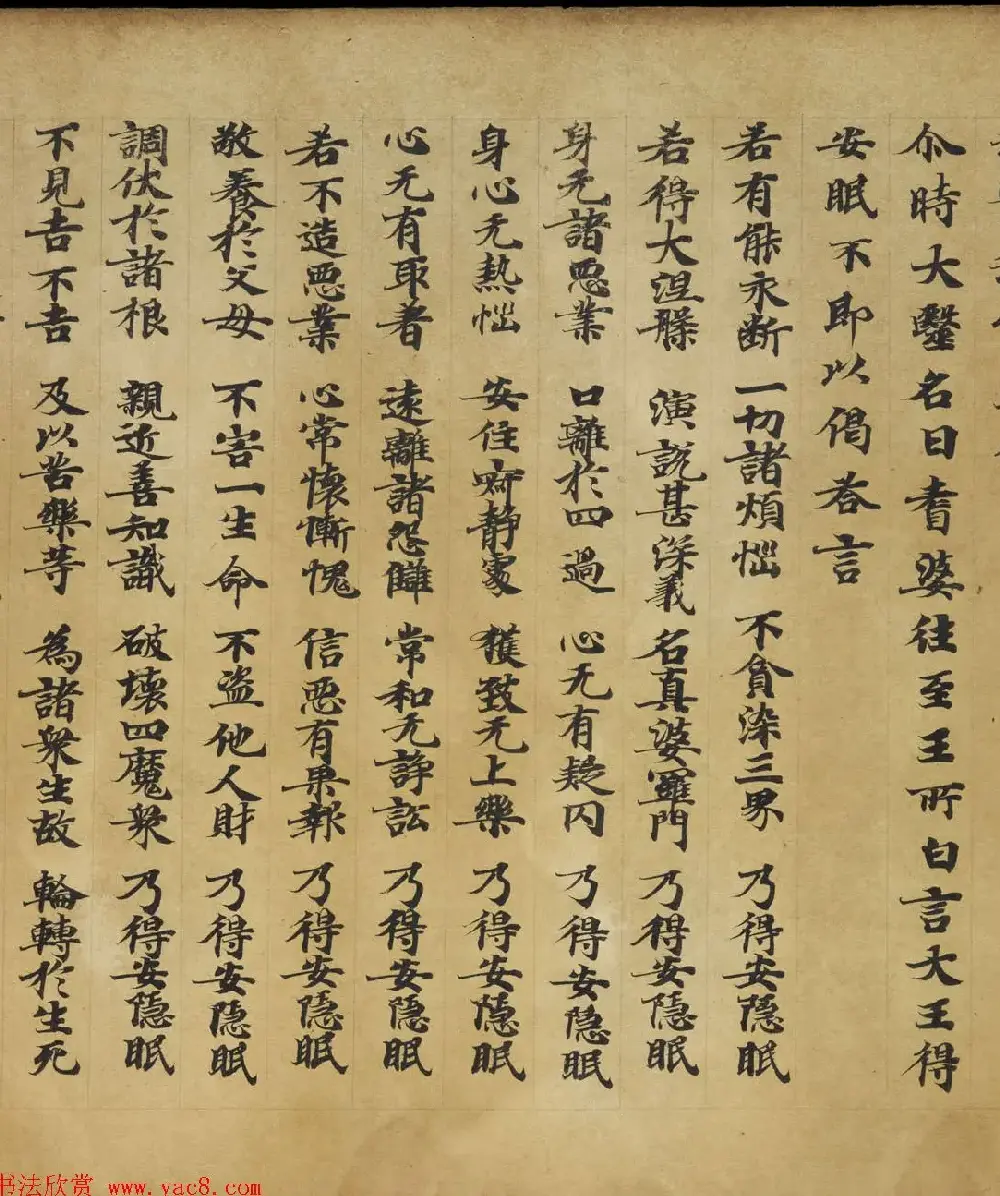 尒時大醫名曰耆婆往至王所白言大王得
安眠不即以偈荅言
若有能永断 一切諸煩惱 不貪染三界 乃得安隠眠
若得大涅槃 演説甚深義 名真婆羅門 乃得安隠眠
身无諸惡業 口離於四過 心无有疑网 乃得安隠眠
身心无熱惱 安住㝷静處 獲致无上樂 乃得安隠眠
心无有取著 遠離諸怨讎 常和无諍訟 乃得安隠眠
若不造惡業 心常懷慚愧 信惡有果報 乃得安隠眠
敬養於父母 不害一生命 不盗他人財 乃得安隠眠
調伏於諸根 親近善知識 破壊四魔衆 乃得安隠眠
不見吉不吉 及以苦樂等 為諸衆生故 輪轉於生死
书法欣赏 www.yac8.com